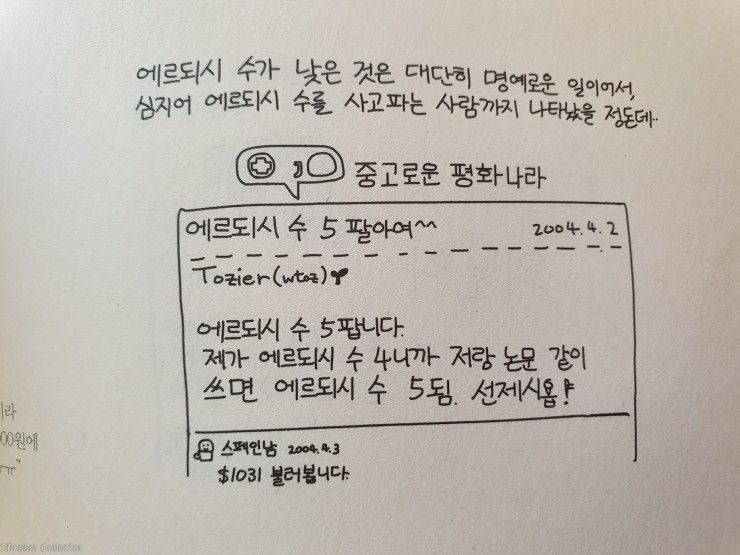 에르되시 수가 낮은 것은 대단히 명예로운 일이어서,
심지어 에르되시 수를 사고파는 사람까지 나타났을 정돈데..
중고로운 평화나라
에르되시 수 5 팔아여^^ 2004.4.2
Tozier(wtoz)
에르되시 수 5팝니다.
제가 에르되시 수 4니까 저랑 논문 같이
쓰면 에르되시 수 5됨. 선제시홉!
스페인남 2004.4.3
$1031 불러봅니다.
라
00원에
ㅠ"
©Dream Collector